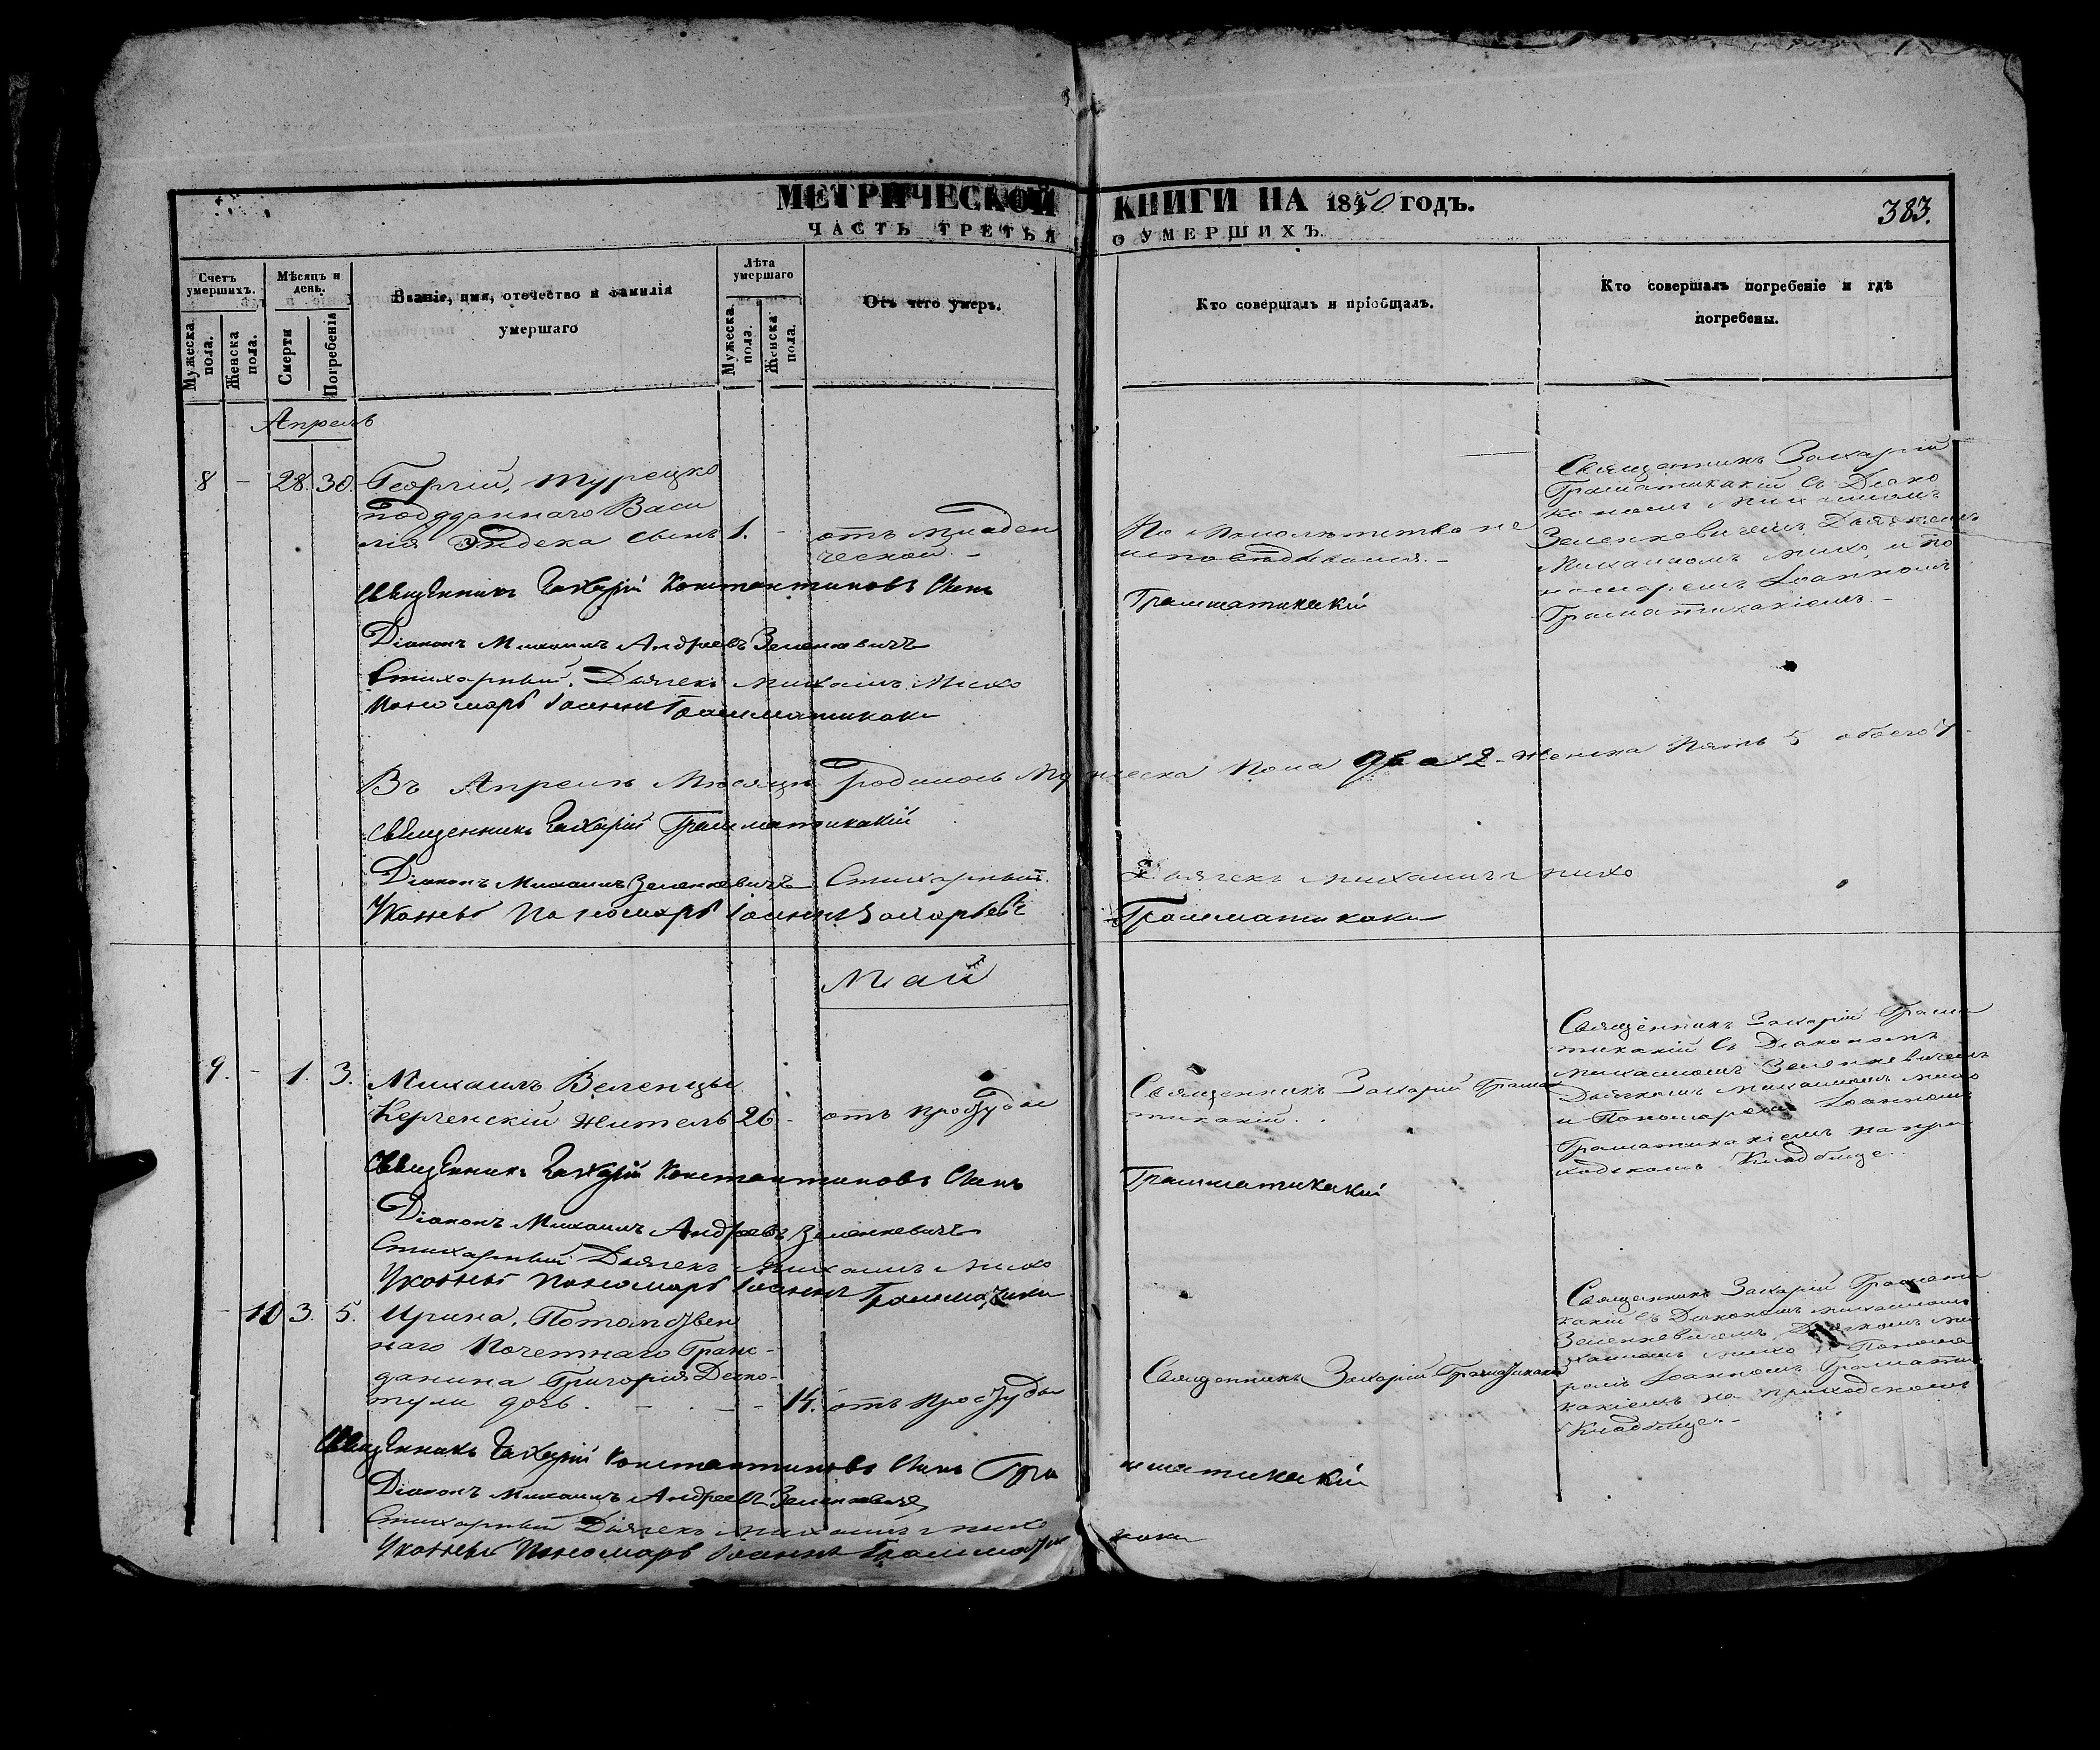 МЕТРИЧЕСКОЙ КНИГИ НА 1850 ГОДЪ.
383.
ЧАСТЬ ТРЕТЬЯ О УМЕРШИХЪ.
Счетъ умершихъ.
Мужеска пола.
Женска пола.
Мѣсяцъ и день.
Смерти
Погребенія
Званіе, имя, отечество и фамилія умершаго
Лѣта умершаго
Мужеска пола.
Женска пола.
Отъ чего умеръ.
Кто совершалъ и пріобщалъ.
Кто совершалъ погребеніе и гдѣ погребены.
Апрель
8 - 28. 30. Георгій, турецко
подданнаго Васи
лія сынъ 1. -
отъ младен
ческой -
По малолетству не
исповѣдыванъ. -
Священникъ Захарій
Граматикакій съ Діако
номъ Михаиломъ
Зеленкевичемъ, Дьячкомъ
Михаиломъ Михо, и по
номаремъ Іоанномъ
Граматикакіемъ. -
Священникъ Захарій Константиновъ Сынъ
Грамматикакій
Діаконъ Михаилъ Андреевъ Зеленкевичъ
Стихарный Дьячекъ Михаилъ Михо
Пономарь Іоаннъ Грамматикаки
Въ Апреле Месяце родилось Мужеска Пола два 2 Женска пять 5 обоего 7
Священникъ Захарій Грамматикакій
Діаконъ Михаилъ Зеленкевичъ Стихарный Дьячекъ Михаилъ Михо
Указный Пономарь Іоаннъ Захарьевъ Грамматикаки
Май
9. - 1. 3. Михаилъ Веленцы
Керченскій житель 26 -
отъ простуды
Священникъ Захарій Грама
тикакій.
Священникъ Захарій Грама
тикакій съ Діакономъ
Михаиломъ Зеленкевичемъ
Дьячкомъ Михаиломъ Михо
и Пономаремъ Іоанномъ
Граматикакіемъ на при
ходскомъ Кладбище.
Священникъ Захарій Константиновъ Сынъ
Грамматикакій
Діаконъ Михаилъ Андреевъ Зеленкевичъ
Стихарный Дьячекъ Михаилъ Михо
Указный Пономарь Іоаннъ Грамматикаки
- 10 3. 5. Ирина, Потомствен
наго Почетнаго Граж-
данина Григорія
дочь. - - - 14.
отъ простуды
Священникъ Захарій Граматикакій
Священникъ Захарій Грамати
какій съ Діакономъ Михаиломъ
Зеленкевичемъ, Дьячкомъ Ми
хаиломъ Михо и Понома
ремъ Іоанномъ Грамати
какіемъ на приходскомъ
Кладбище. -
Священникъ Захарій Константиновъ Сынъ Грамматикакій
Діаконъ Михаилъ Андреевъ Зеленкевичъ
Стихарный Дьячекъ Михаилъ Михо
Указный Пономарь Іоаннъ Грамматикаки